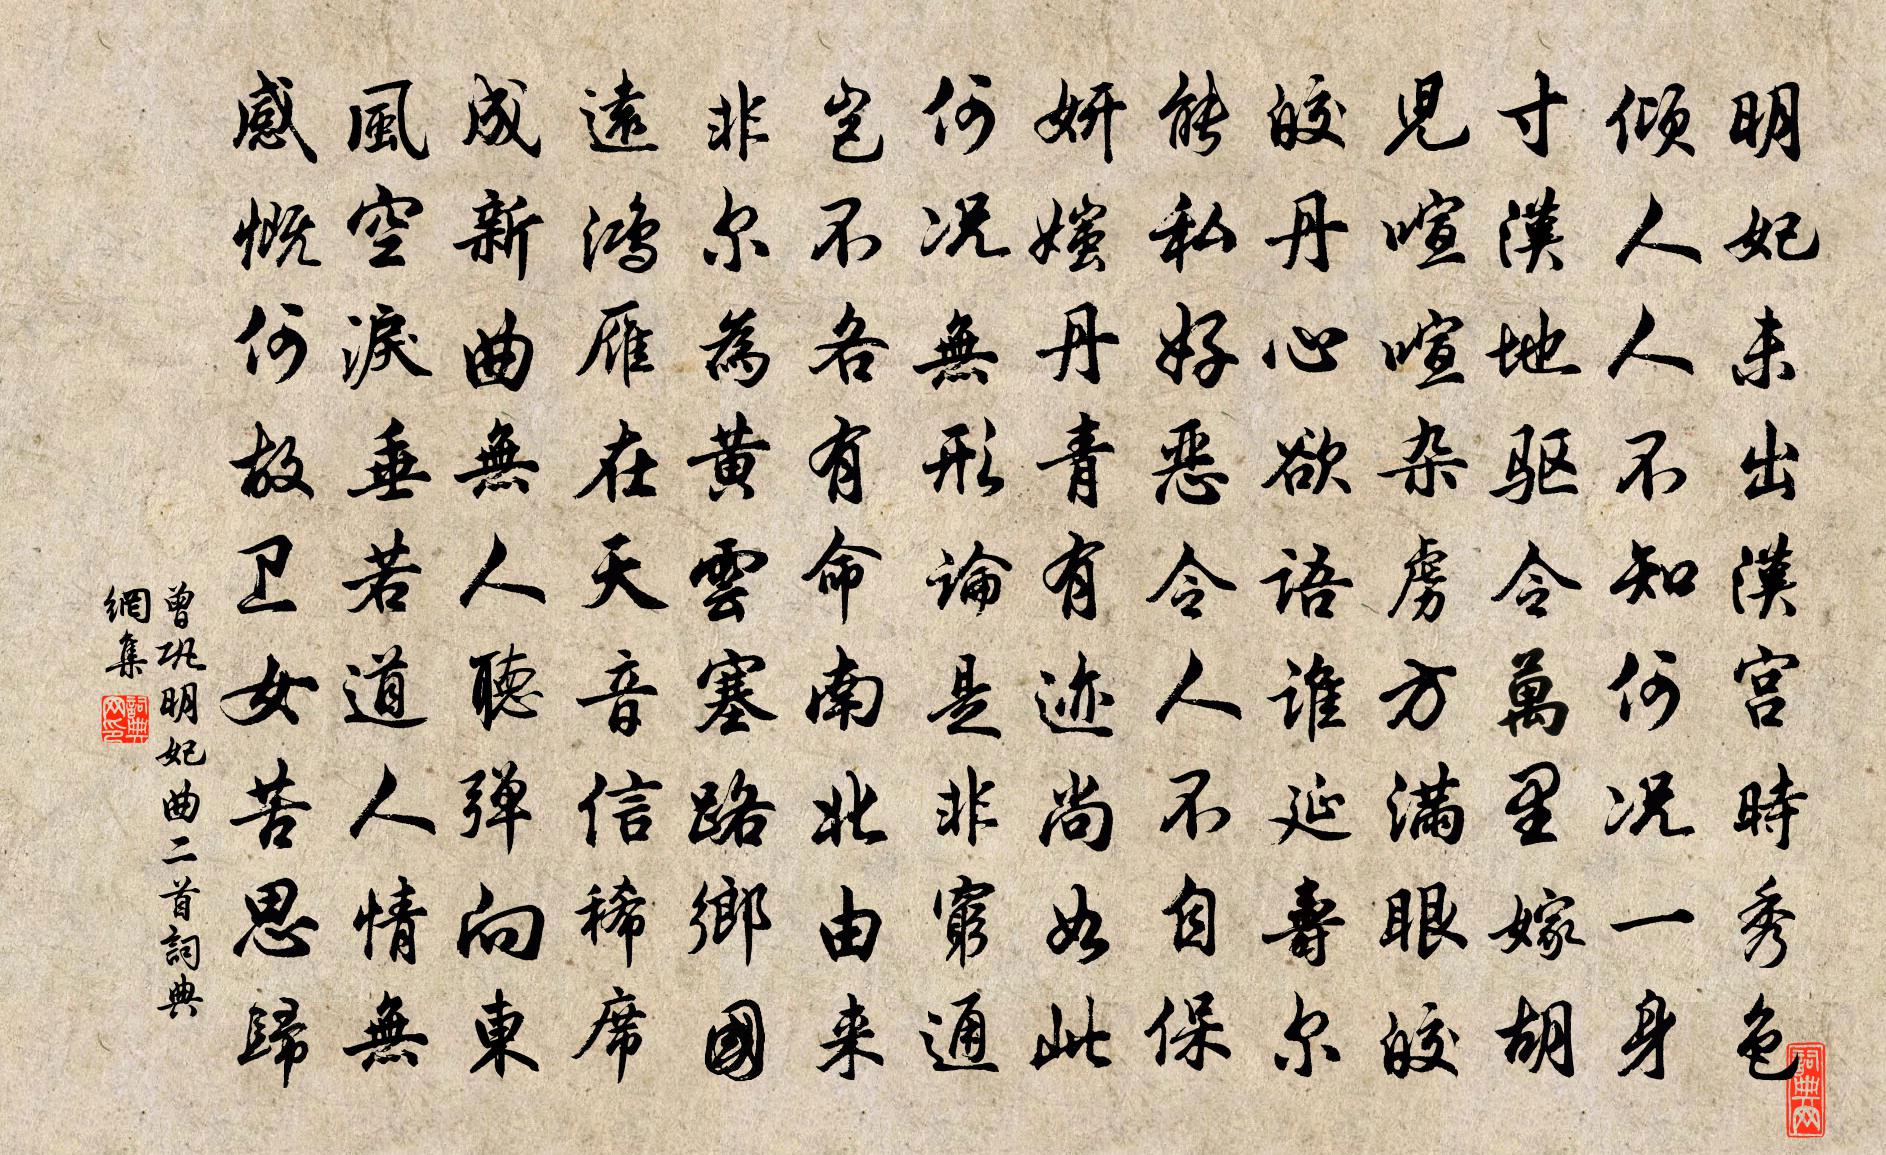 明妃未出漢宫時秀色
倾人人不知何况一身
寸漢地驱令萬里嫁胡
児喧喧杂虏方满眼皎
皎丹心欲语谁延壽尔
能私好恶令人不自保
妍媸丹青有迹尚如此
何况無形論是非窮通
岂不各有命南北由来
非尔為黄雲塞路鄉國
遠鸿雁在天音信稀席
成新曲無人聽弹向東
風空淚垂若道人情無
感慨何故卫女苦思歸
曾巩明妃曲二首詞典
網集
詞典网印
詞典网